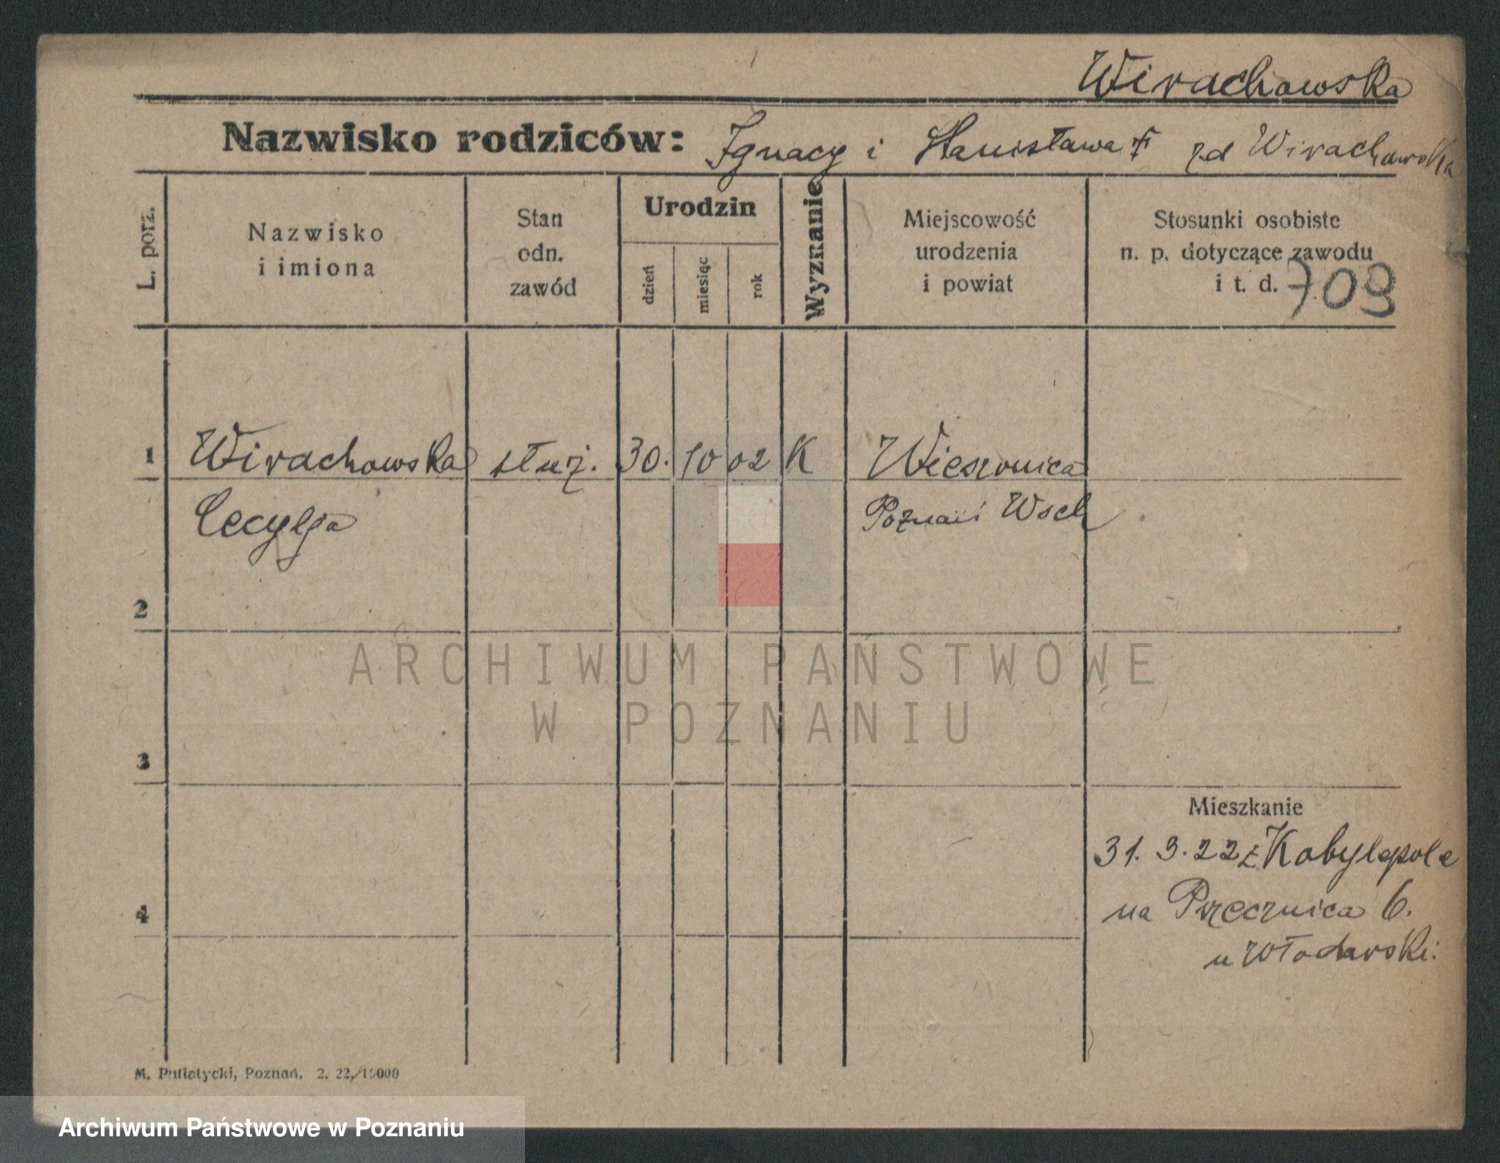 Wirachowska
Nazwisko rodziców: Ignacy i Stanisława zd Wirachowska
L. porz.
Nazwisko
i imiona
Stan
odn.
zawód
Urodzin
dzień
miesiąc
rok
Wyznanie
Miejscowość
urodzenia
i powiat
Stosunki osobiste
n. p. dotyczące zawodu
i t. d. 709
1 Wirachowska służ. 30. 10 02 K Wieszonica
Cecylja Poznań Wsch
2
ARCHIWUM PAŃSTWOWE
W POZNANIU
3
Mieszkanie
31. 3. 22 z Kobylepole
na Przecznica 6.
4
u Włodarski.
M. Putiatycki, Poznań. 2. 22./10000
Archiwum Państwowe w Poznaniu